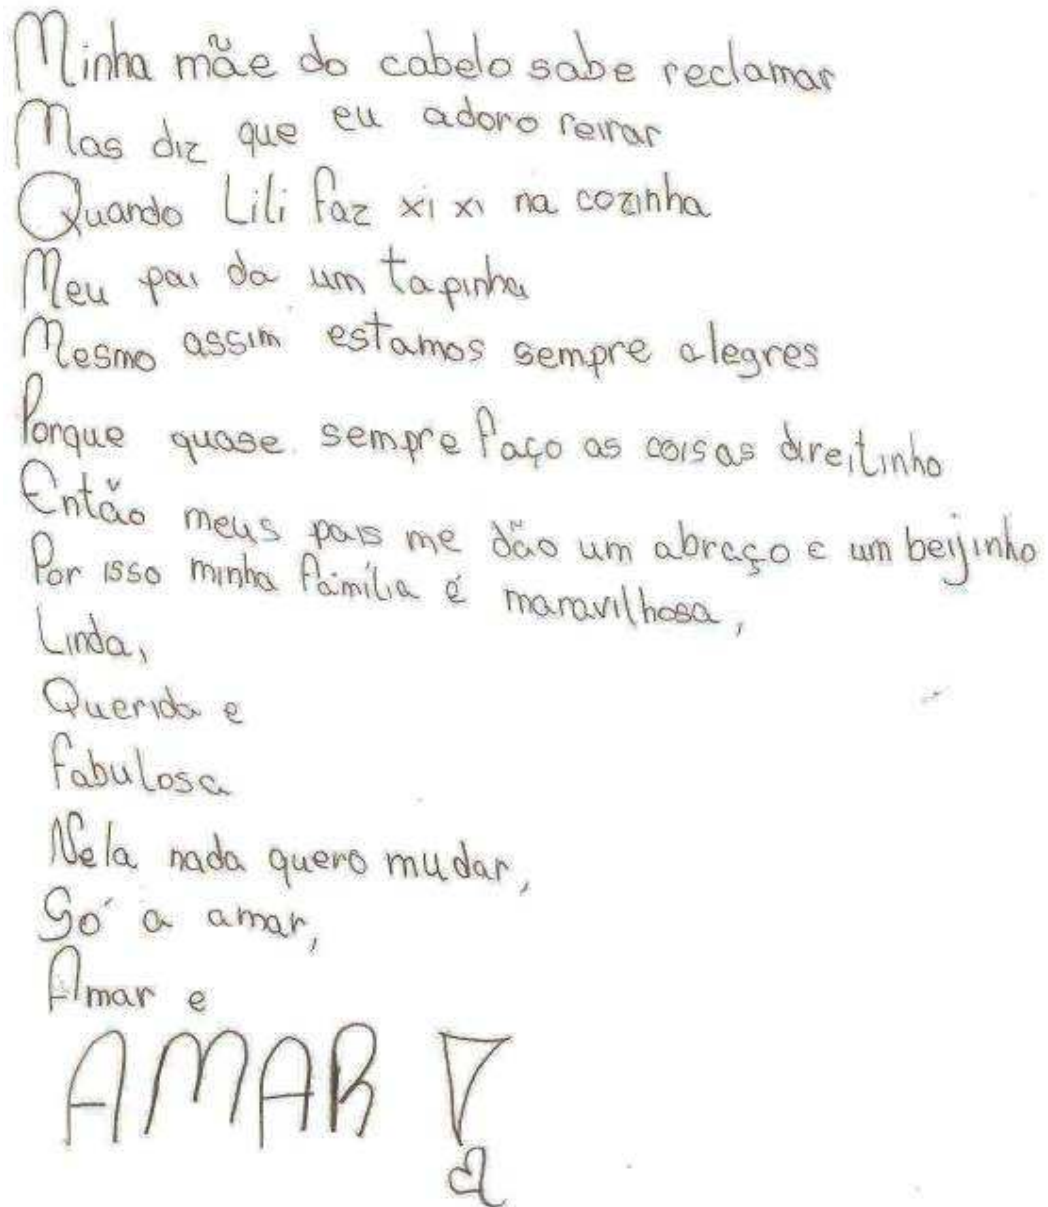 Minha mãe do cabelo sabe reclamar
Mas diz que eu adoro reirar
Quando Lili faz xi xi na cozinha
Meu pai da um tapinha
Mesmo assim estamos sempre alegres
Porque quase sempre faço as coisas direitinho
Então meus pais me dão um abraço e um beijinho
Por isso minha família é maravilhosa,
Linda,
Querida e
fabulosa
Nela nada quero mudar,
Só a amar,
Amar e
AMAR !